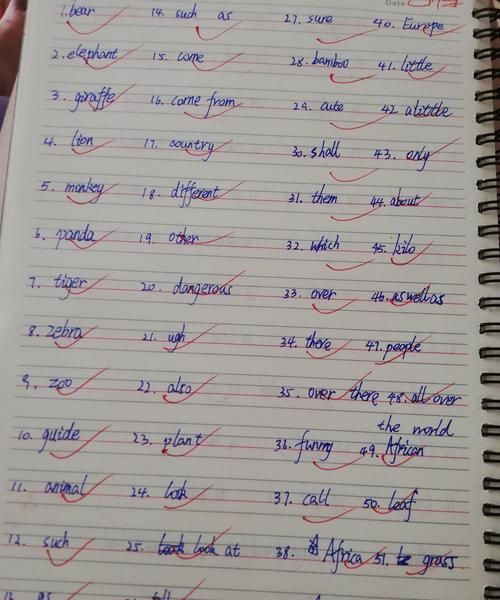 Date
1. bear
2. elephant
3. giraffe
4. Lion
5. monkey
6. panda
7. tiger
8. zebra
9. zoo
10. guide
11. animal
12. such
13. as
14. such as
15. come
16. come from
17. country
18. different
19. other
20. dangerous
21. ugh
22. also
23. plant
24. look
25. look at
27. sure
28. bamboo
29. cute
30. shall
31. them
32. which
33. over
34. there
35. over there
36. funny
37. call
38. Africa
40. Europe
41. little
42. alittle
43. only
44. about
45. kilo
46. aswellas
47. people
48. all over
the world
49. African
50. leaf
51. grass